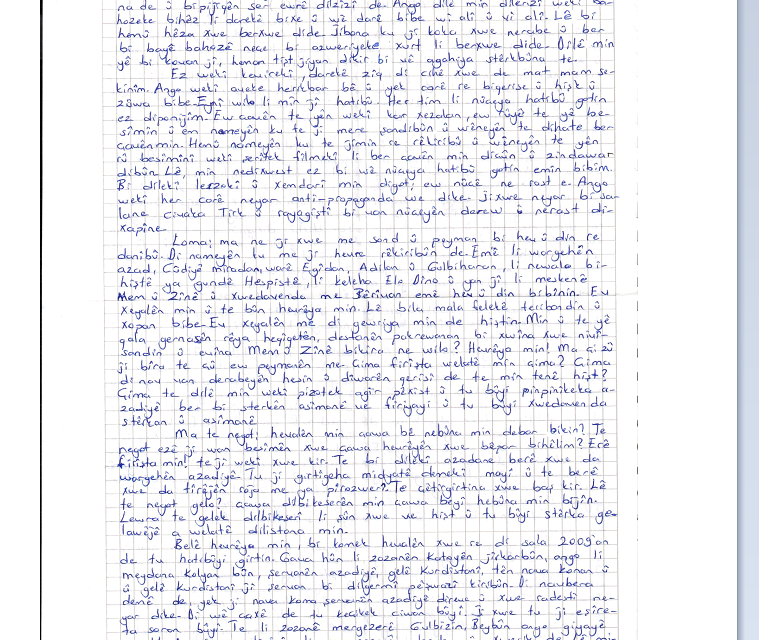 na de û bi pijîyên sar ewrê dilzîzî de. Ango dilê min dilerizî wekî ba-
hozekê bihêz li darekê bixe û wê darê bibe wî alî û vî alî. Lê bi
hemû hêza xwe berxwe dide. Jibona ku ji koka xwe nerabe û ber
bi bayê bahozê neçe bi azweriyeke xurt li berxwe dide. Dilê min
yê bi kovan jî, heman tişt jiyan dikir bi vê agahiya stêrkbûna te.
Ez wekî kevirekî, darekê ziq di cihê xwe de mat mam se-
kinîm. Ango wekî aveke herikbar bê û yek carê re bigerise û hişk û
zûwa bibe. Eynî wilo li min jî hatibû. Her tim li nûçeya hatibû gotin
ez diponijîm. Ew çavên te yên wekî kar xezalan, ew rûyê te yê be-
şimîn û em nameyên ku te ji mere şandibûn û wêneyên te dihate ber
çavên min. Hemû nameyên ku te ji min re rêkiribû û wêneyên te yên
rû besimînî wekî şerîtek filmekî li ber çavên min diçûn û zindewar
dibûn. Lê, min nedixwest ez bi wê nûçeya hatibû gotin emin bibim.
Bi dilekî lerzokî û xemdarî min digot; ew nûçe ne rast e. Ango
wekî her carê neyar anti-propaganda we dike. Ji xwe neyar bi sa-
lane, civaka Tirk û rayagiştî bi van nûçeyên derew û nerast di-
xapîne.
Loma; ma ne ji xwe me sond û peyman bi hev û din re
danîbû. Di nameyên ku me ji hevre rêkiribûn de. Emê li warghên
azad, Cûdiyê miradan, warê Egîdan, Adilan û Gulbiharan, li newala bi-
hiştê ya gundê Hespistê, li keleha Ela Dîno û yan jî li meskenê
Mem û Zînê û xwedavenda me Bêrîvan emê hev û din bibînin. Ev
xeyalên min û te bûn hevrêya min. Lê bila mala felekê teribandin û
xopan bibe. Ev xeyalên me di gewriya min de hiştin. Min û te yê
qala gernasên rêya heqîqetên, destanên pakrewanan bi xwîna xwe nivî-
sandin û evîna Mem û Zînê bikira ne wilo? Hevrêya min! Ma çi zû
ji bîra te çû ew peymanên me. Çima firişta welatê min çima? Çima
di nav van derabeyên hesin û dîwarên gerisî de te min tenê hişt?
Çima te dilê min wekî pizotek agir pêxist û tu bûyî pinpinîkeka a-
zadiyê ber bi stêrkên asîmanê ve firiyayî û tu bûyî xwedavenda
stêrkan û asîmanê
Ma te negot; hevalên min çawa bê nebûna min debar bikin? Te
negot ezê jî van besimên xwe çawa hevrêyên xwe bêpar bihêlim? Erê
firişta min! te jî wekî xwe kir. Te bi dilekî azadane berê xwe da
warghên azadiyê. Tu ji girtîgeha midyatê demekî mayî û te berê
xwe da tîrêjên roja me ya pîrozwer? Te qêtirgirtina xwe baş kir. Lê
te negot gelo? çawa dilbikeserên min çawa bêyî hebûna min bijîn.
Lewra te gelek dilbikeserî li şûn xwe ve hişt û tu bûyî stêrka ge-
lawêjê a welatê dilistona min.
Belê hevrêya min, bi komek hevalên xwe re di sala 2009an
de tu hatibûyî girtin. Gava hûn li zozanên Katoyên jîrkarbûn, ango li
meydana kolyan bûn, şervanên azadiyê, gelê Kurdistanî, tên nava konan û
û gelê Kurdistanî jî şervan bi dilgermî pêşwazî kiribûn. Di navbera
demê de, yek ji nava koma şervanên azadiyê direve û xwe radestî ne-
yar dike. Di wê çaxê de tu keçikek ciwan bûyî. Ji xwe tu ji eşîre-
ta soran bûyî. Te li zozanê mergezerê Gulbizin, Beybûn ango giyayê